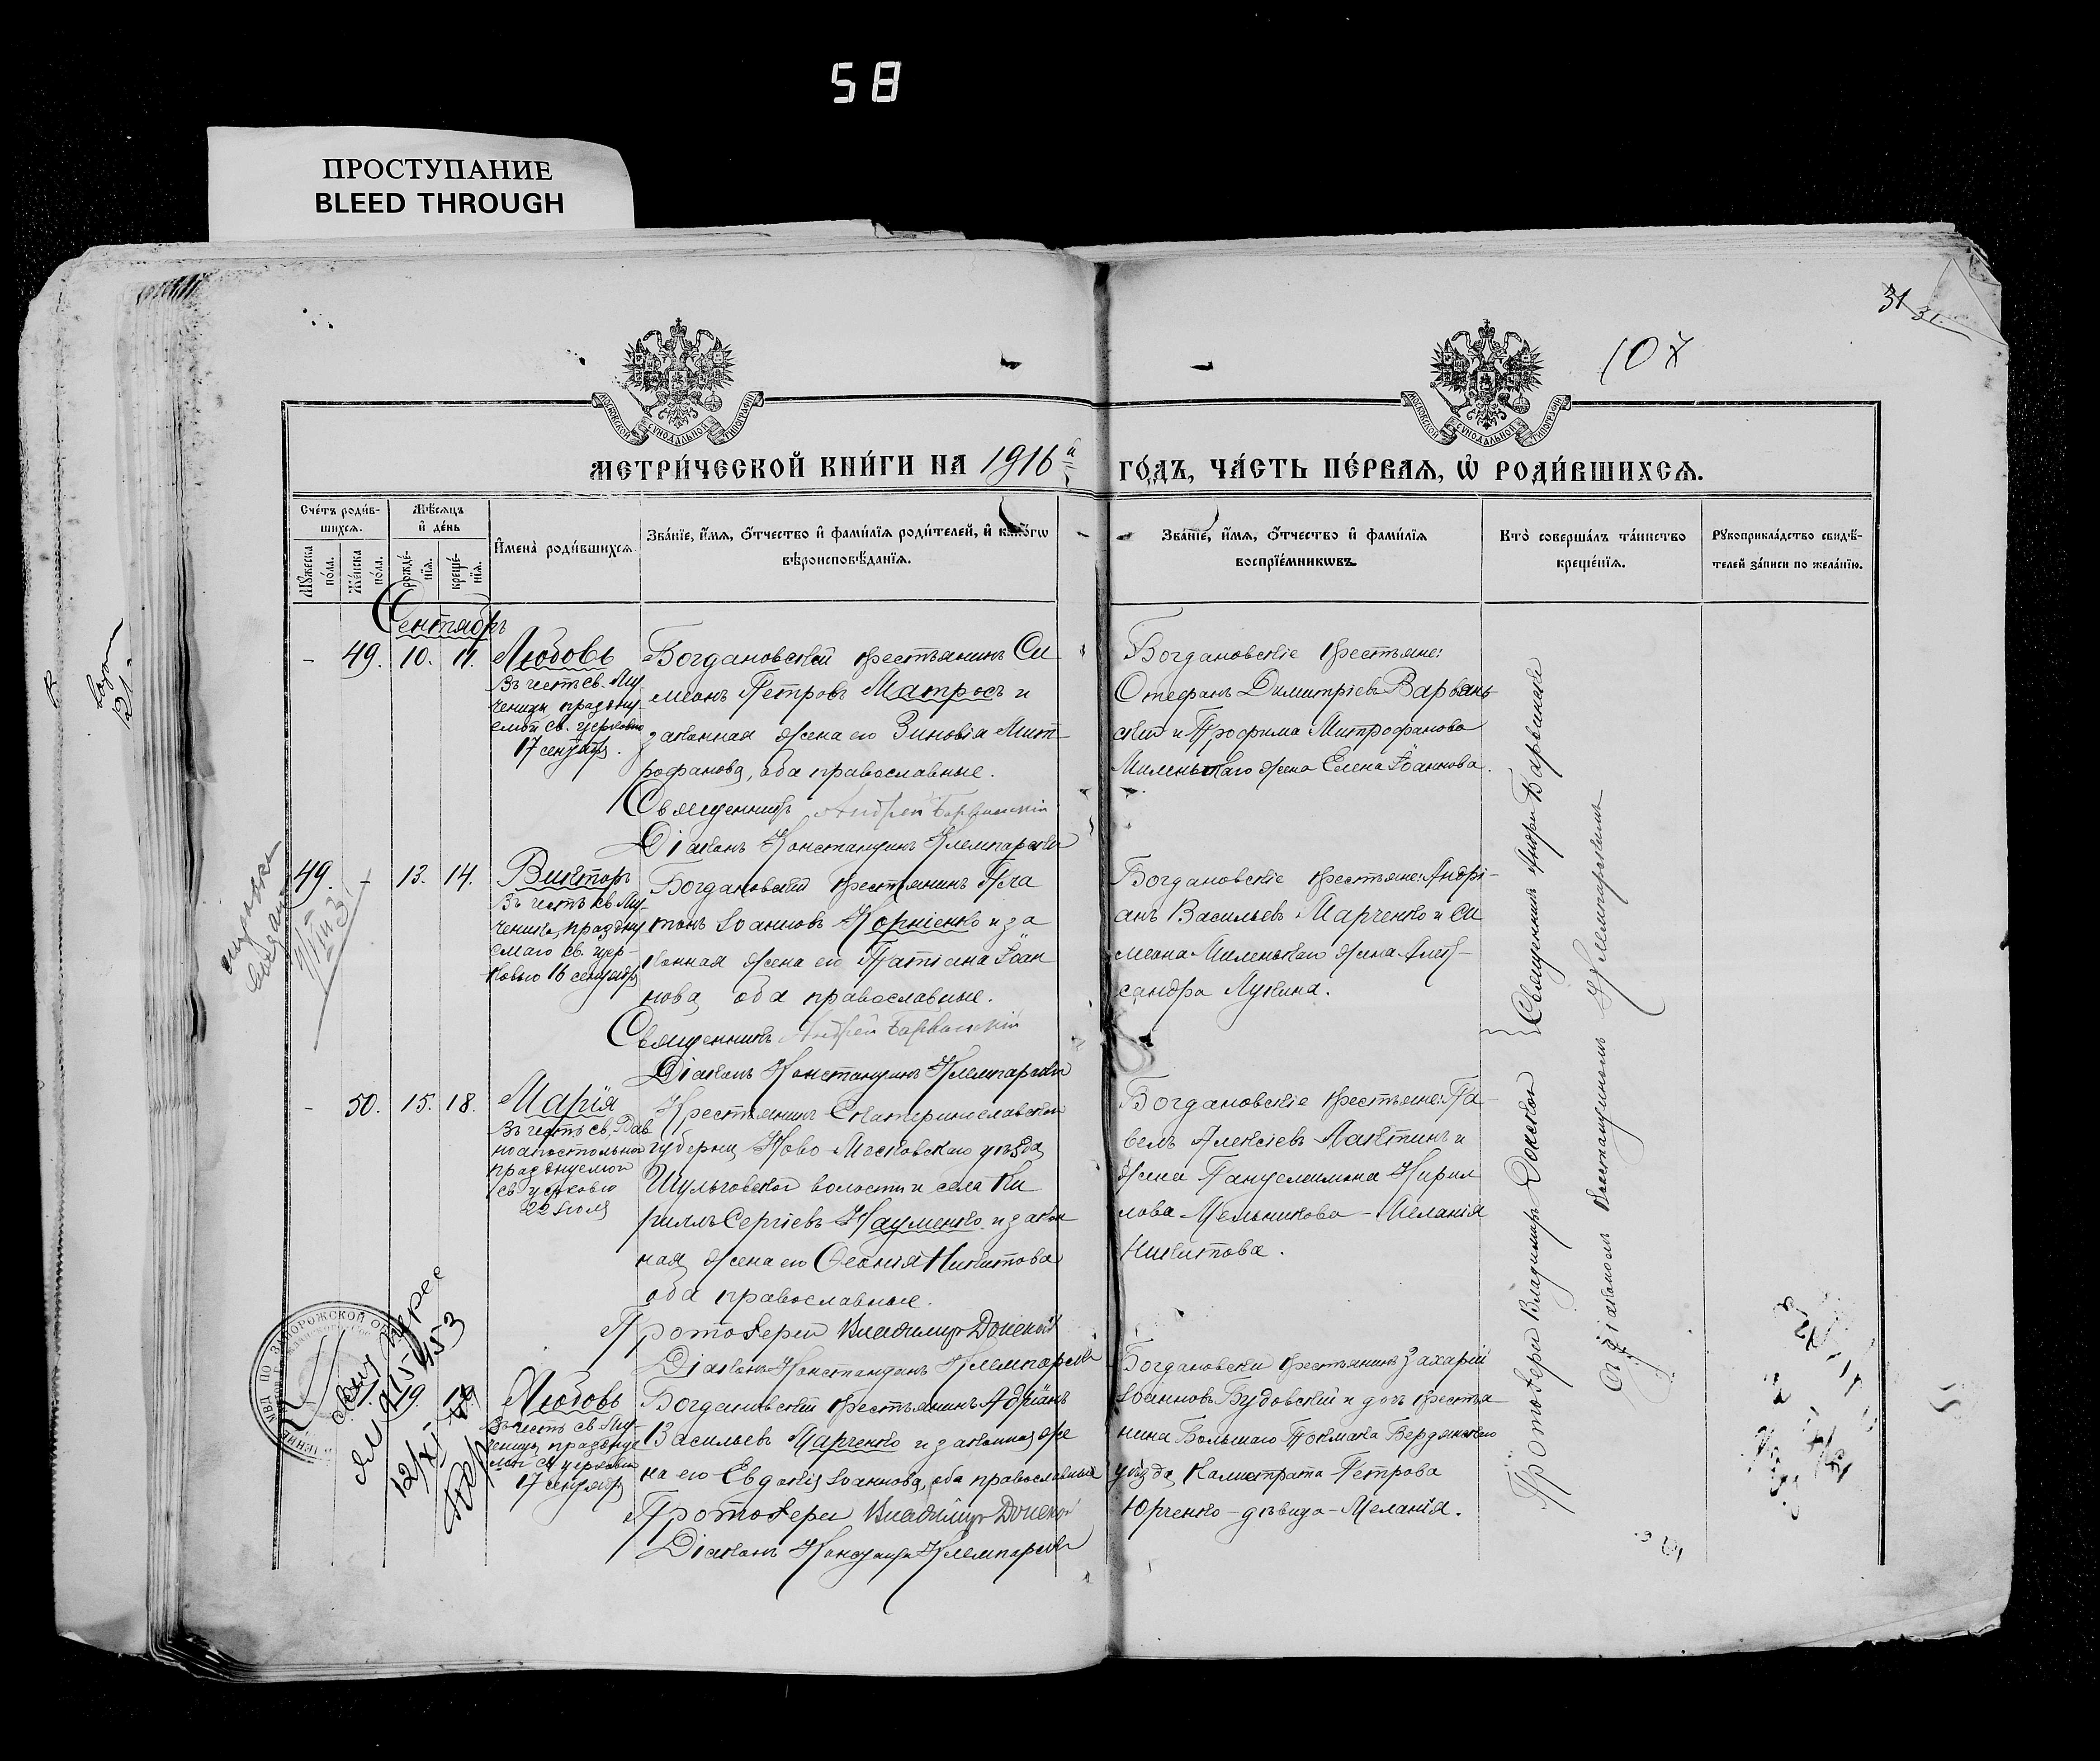 58
ПРОСТУПАНИЕ
BLEED THROUGH
31 31.
107
МОСКОВСКОЙ СѴНОДАЛЬНОЙ ТИПОГРАФІИ
МОСКОВСКОЙ СѴНОДАЛЬНОЙ ТИПОГРАФІИ
МЕТРИ́ЧЕСКОЙ КНИ́ГИ НА 1916й ГО́ДЪ, ЧА́СТЬ ПЕ́РВАѦ, Ѡ҆ РОДИ́ВШИХСѦ.
Сче́тъ роди́в-
шихсѧ.
Мꙋ́жеска по́ла.
Же́нска по́ла.
Мѣ́сѧцъ
и҆ де́нь
рожде́-
нїѧ.
креще́-
нїѧ.
И҆мена̀ роди́вшихсѧ
Зва́нїе, и҆́мѧ, ѻ҆́тчество и҆ фами́лїѧ роди́телей, и҆ како́гѡ
вѣроисповѣ́данїѧ.
Зва́нїе, и҆́мѧ, ѻ҆́тчество и҆ фами́лїѧ
воспрїе́мникѡвъ.
Кто̀ соверша́лъ та́инство
креще́нїѧ.
Рꙋкоприкла́дство свидѣ́-
телей за́писи по жела́нїю.
Сентябрь
- 49. 10. 11. Любовь
Въ честь св. Му-
ченицы праздну-
емой св. церковью
17 сентября.
Богдановскій крестьянинъ Си
меонъ Петровъ Матросъ и
законная жена его Зиновіа Мит-
рофанова, оба православные.
Священникъ Андрей Барвинскій
Діаконъ Константинъ Клемпарскій
Богдановскіе крестьяне:
Стефанъ Димитріевъ Варвянь-
скій и Трофима Митрофанова
Миленькаго жена Елена Іоаннова.
49. - 13. 14. Викторъ
Въ честь св. Му-
ченика, праздну
емаго св. цер-
ковью 16 сентября
Богдановскій крестьянинъ Пла
тонъ Іоанновъ Корніенко и за
конная жена его Татіана Іоан
нова, оба православные.
Священникъ Андрей Барвинскій
Діаконъ Константинъ Клемпарскій
Богдановскіе крестьяне: Андрі-
анъ Васильевъ Марченко и Си
меона Миленькаго жена Алек-
сандра Лукина.
- 50. 15. 18. Марія
Въ честь св. Рав
ноапостольной
празднуемой
св. церковью
22 Іюля
Крестьянинъ Екатеринославской
губерніи, Ново-Московскаго уѣзда,
Шульговской волости и села Ки
риллъ Сергіевъ Науменко и закон
ная жена его Ѳеонія Никитова
оба православные.
Протоіерей Владиміръ Донской
Діаконъ Константинъ Клемпарскій
Богдановскіе крестьяне: Па-
велъ Алексіевъ Лактинъ и
жена Пантелеимона Кирил
лова Мельникова - Меланія
Никитова.
19. Любовь
Въ честь св. Му-
ченицы празднуе
мой св. церковью
17 сентября
Богдановскій крестьянинъ Адріанъ
Васильевъ Марченко и законная же
на его Евдокія Іоаннова, оба православные
Протоіерей Владиміръ Донской
Діаконъ Константинъ Клемпарскій
Богдановскій крестьянинъ Захарій
Іоанновъ Будовскій и дочь крестья
нина Большаго Токмака Бердянскаго
уѣзда, Калистрата Петрова
Юрченко - дѣвица - Меланія.
Протоіерей Владиміръ Донской } Священникъ Андрей Барвинскій
съ діакономъ Константиномъ Клемпарскимъ